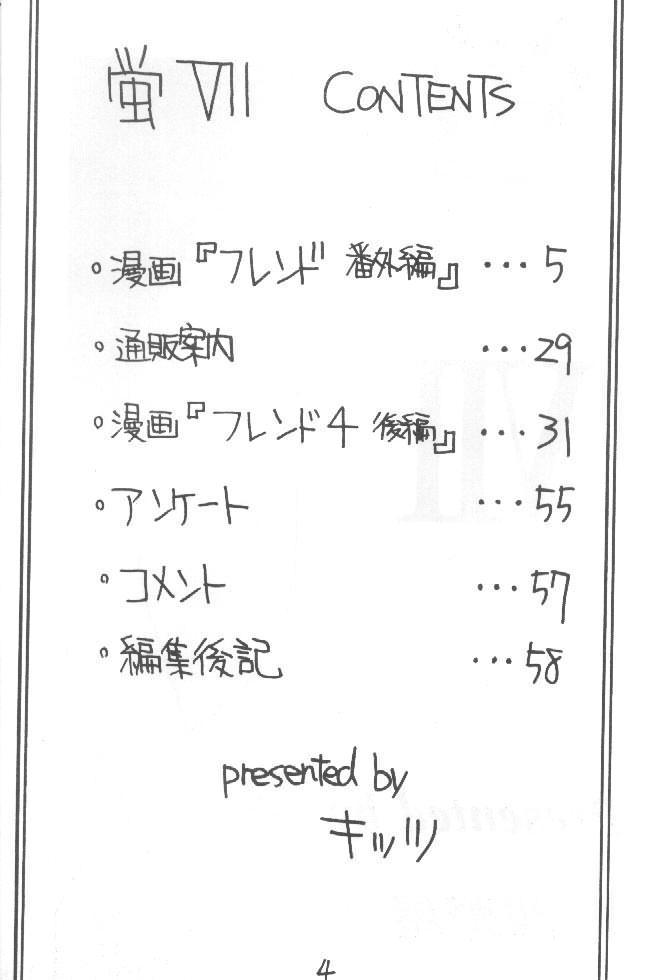 蛍 VII CONTENTS
。漫画『フレンド 番外編』 ・・・5
。通販案内 ・・・29
。漫画『フレンド4 後編』 ・・・31
。アンケート ・・・55
。コメント ・・・57
。編集後記 ・・・58
presented by
キッツ
4